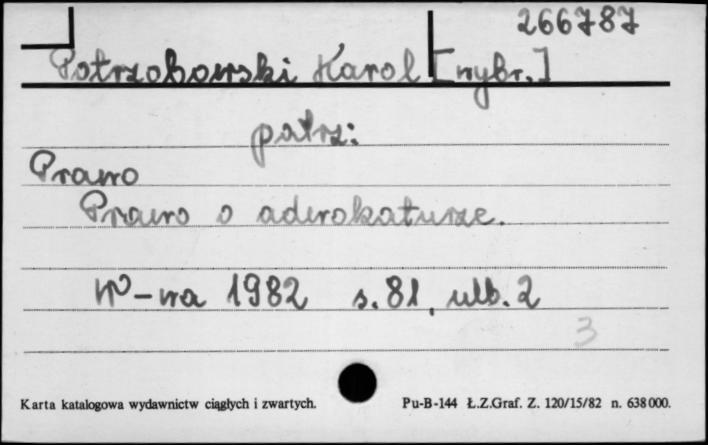 266787
Potrzobowski Karol [wybr.]
patrz:
Prawo
Prawo o adwokaturze.
W-wa 1982 s. 81, ulb. 2
3
Karta katalogowa wydawnictw ciągłych i zwartych. Pu-B-144 Ł.Z.Graf. Z. 120/15/82 n. 638000.